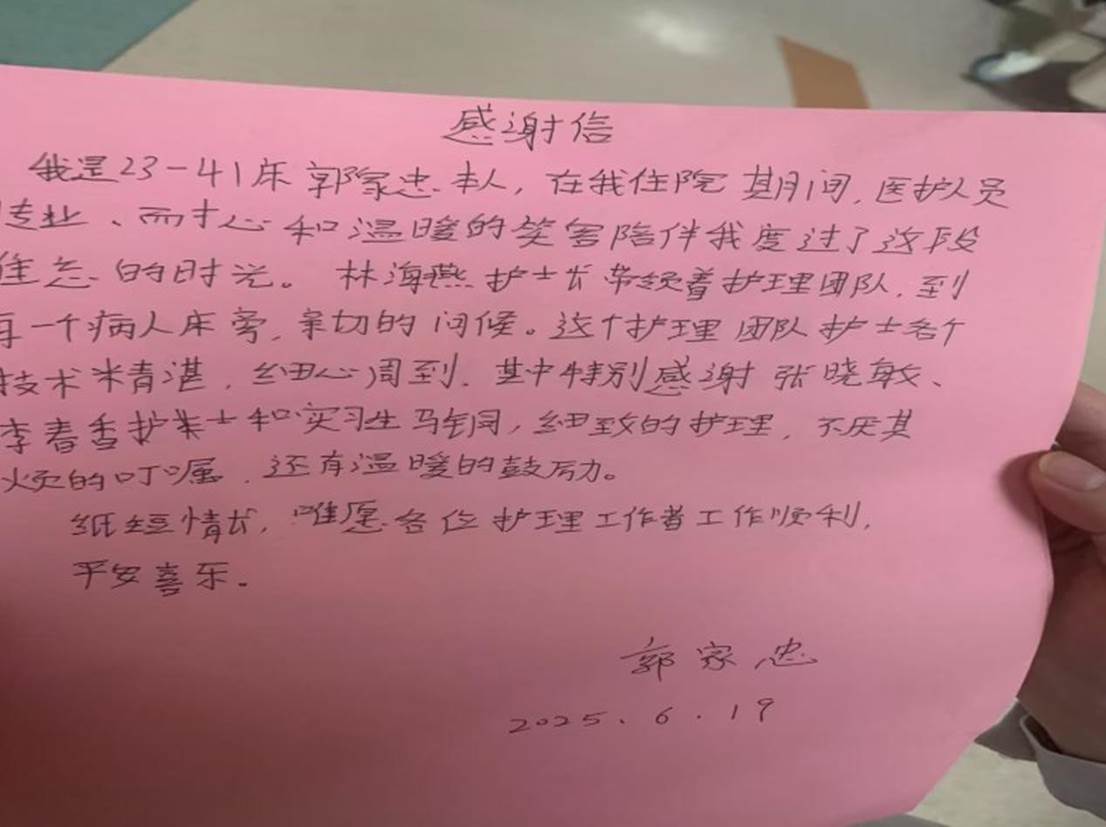 感谢信
我是23-41床郭家忠本人，在我住院期间，医护人员
专业、耐心和温暖的笑容陪伴我度过了这段
难忘的时光。林海燕护士长带领着护理团队，到
每一个病人床旁，亲切的问候。这个护理团队护士各个
技术精湛，细心周到，其中特别感谢张晓敏、
李春香护士和实习生马钶，细致的护理，不厌其
烦的叮嘱，还有温暖的鼓励。
纸短情长，唯愿各位护理工作者工作顺利，
平安喜乐。
郭家忠
2025.6.19